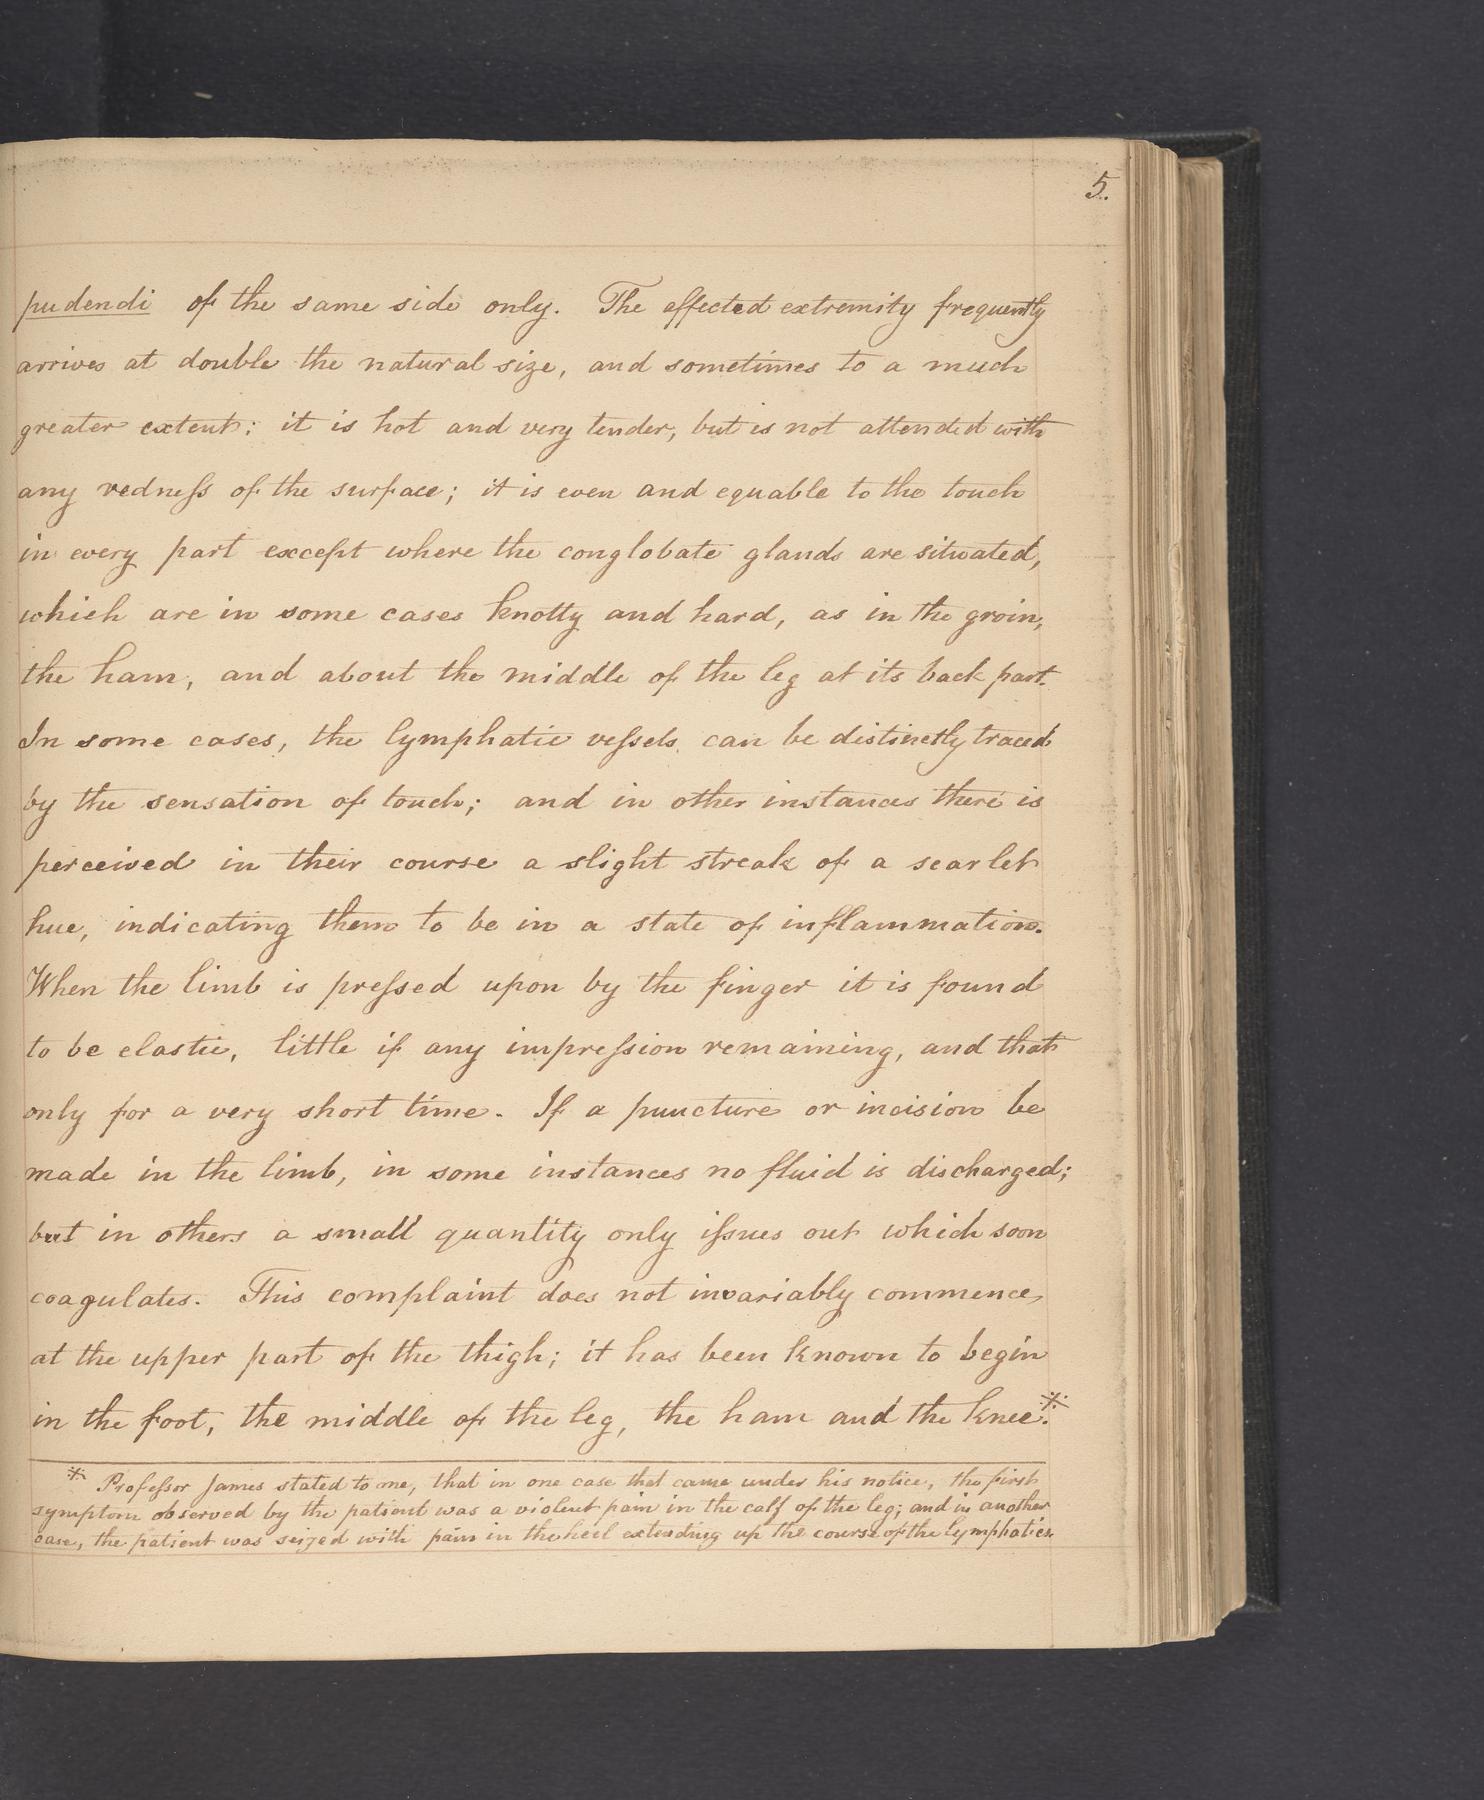 5.
pudendi of the same side only. The effected extremity frequently
arrives at double the natural size, and sometimes to a much
greater extent; it is hot and very tender, but is not attended with
any redneſs of the surface; it is even and equable to the touch
in every part except where the conglobate glands are situated,
which are in some cases knotty and hard, as in the groin,
the ham, and about the middle of the leg at its back part.
In some cases, the lymphatic veſsels can be distinctly traced
by the sensation of touch; and in other instances there is
perceived in their course a slight streak of a scarlet
hue, indicating them to be in a state of inflammation.
When the limb is preſsed upon by the finger it is found
to be elastic, little if any impreſsion remaining, and that
only for a very short time. If a puncture or incision be
made in the limb, in some instances no fluid is discharged;
but in others a small quantity only iſsues out which soon
coagulates. This complaint does not invariably commence
at the upper part of the thigh; it has been known to begin
in the foot, the middle of the leg, the ham and the knee.*
* Profeſsor James stated to me, that in one case that came under his notice, the first
symptom observed by the patient was a violent pain in the calf of the leg; and in another
case, the patient was seized with pain in the heel extending up the course of the lymphatics.